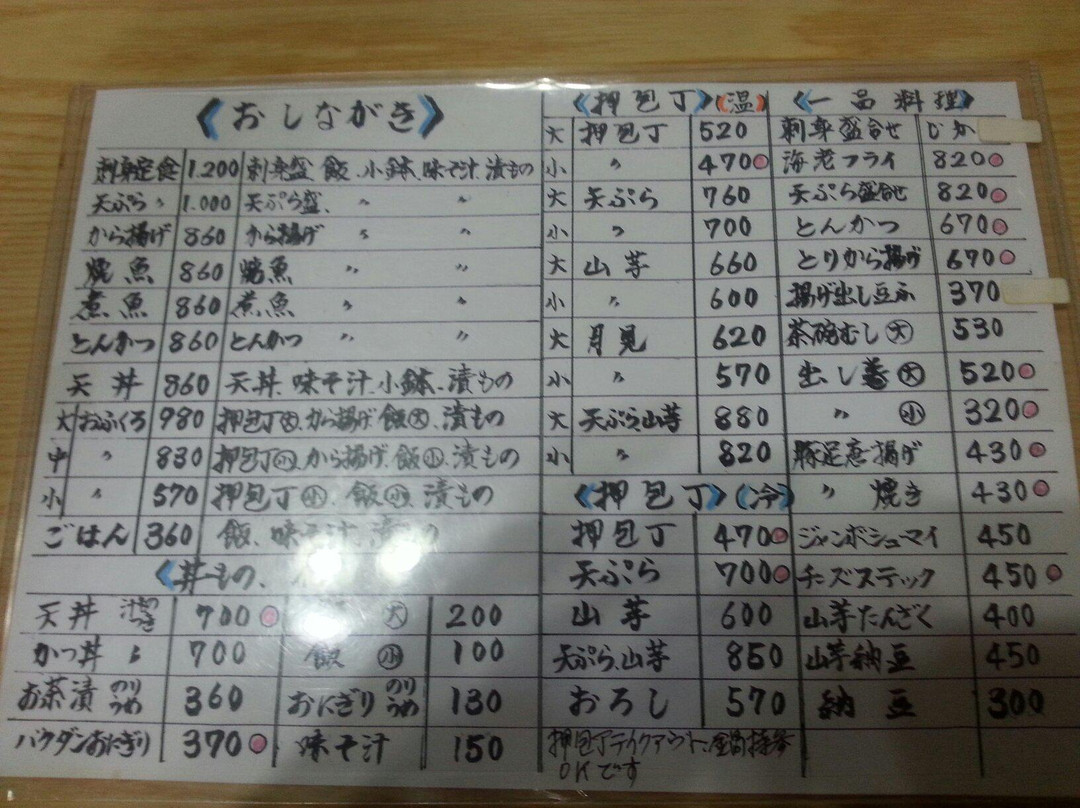 《おしながき》
刺身定食 1.200 刺身盛、飯、小鉢、味そ汁、漬もの
天ぷら 〃 1.000 天ぷら盛、 〃 〃
から揚げ 860 から揚げ 〃 〃
焼魚 860 焼魚 〃 〃
煮魚 860 煮魚 〃 〃
とんかつ 860 とんかつ 〃 〃
天丼 860 天丼、味そ汁、小鉢、漬もの
大 おふくろ 980 押包丁㊅、から揚げ、飯㊅、漬もの
中 〃 830 押包丁㊉、から揚げ、飯㊉、漬もの
小 〃 570 押包丁㊉、飯㊉、漬もの
ごはん 360 飯、味そ汁、漬もの
《丼もの、
天丼 汁つき 700 大 200
かつ丼 〃 700 飯 小 100
お茶漬 のり うめ 360 おにぎり のり うめ 130
バクダンおにぎり 370 味そ汁 150
《押包丁》(温)
大 押包丁 520
小 〃 470
大 天ぷら 760
小 〃 700
大 山芋 660
小 〃 600
大 月見 620
小 〃 570
大 天ぷら、山芋 880
小 〃 820
《押包丁》(冷)
押包丁 470
天ぷら 700
山芋 600
天ぷら、山芋 850
おろし 570
押包丁テイクアウト、
OKです
《一品料理》
刺身盛合せ じか
海老フライ 820
天ぷら盛合せ 820
とんかつ 670
とりから揚げ 670
揚げ出し豆ふ 370
茶碗むし 大 530
出し巻 大 520
〃 小 320
豚足唐揚げ 430
〃 焼き 430
ジャンボシューマイ 450
チーズステック 450
山芋たんざく 400
山芋納豆 450
納豆 300